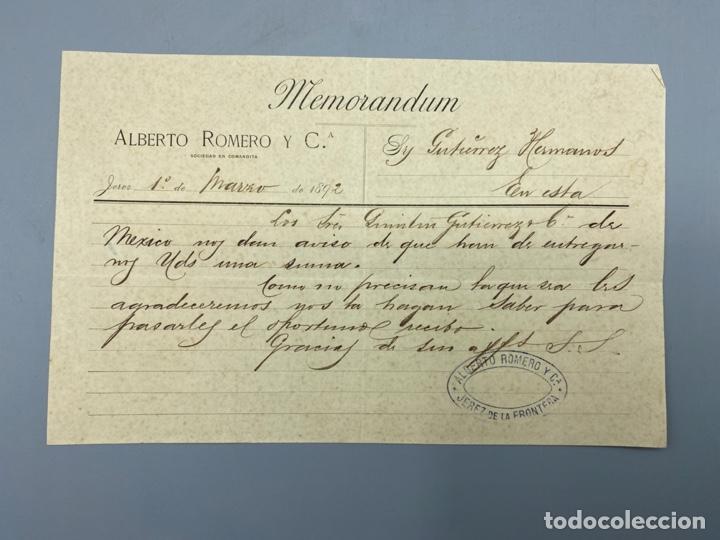 Memorandum
ALBERTO ROMERO Y C.ᴬ
SOCIEDAD EN COMANDITA
Jerez 1º de Marzo de 1892
Gutiérrez Hermanos
En esta
Los Sres Quintin Gutierrez & Cª de
Mexico nos dan aviso de que han de entregar-
nos Uds una suma.
Como no precisan la que sea les
agradeceremos nos la hagan saber para
pasarles el oportuno recibo.
Gracias de sus S. S.
ALBERTO ROMERO Y Cª
JEREZ DE LA FRONTERA
todocoleccion
todocoleccion.net